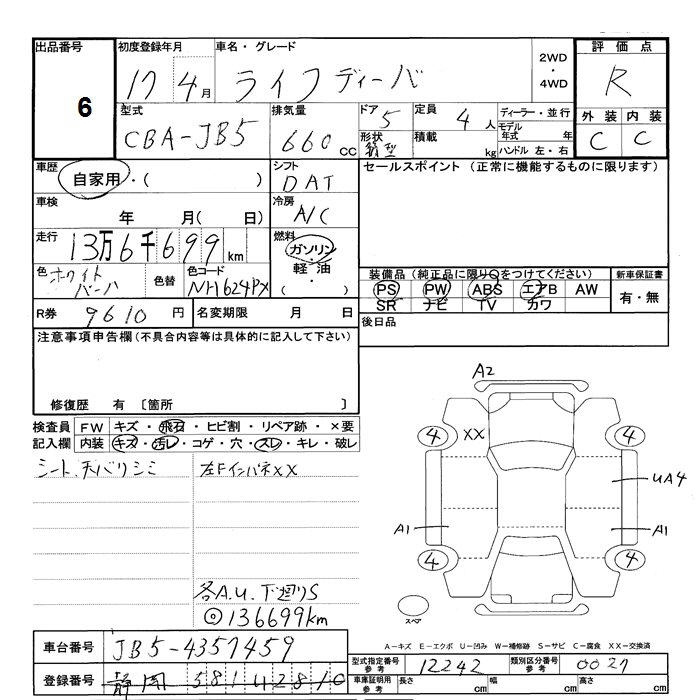 出品番号
6
初度登録年月
17 4月
車名・グレード
ライフディーバ
2WD
・
4WD
評価点
R
型式
CBA-JB5
排気量
660cc
ドア 5
定員 4人
ディーラー・並行
形状 箱型
積載 kg
モデル年式 年
ハンドル 左・右
外装 内装
C C
車歴
自家用・( )
シフト
DAT
セールスポイント (正常に機能するものに限ります)
車検
年 月( 日)
冷房
A/C
走行
13万6千699km
燃料
ガソリン・
軽油・
( )
色 ホワイトパール
色替
色コード
NH624PX
装備品(純正品に限り○をつけてください)
新車保証書
PS PW ABS エアB AW
SR ナビ TV カワ
有・無
R券 9610円
名変期限 月 日
後日品
注意事項申告欄(不具合内容等は具体的に記入して下さい)
修復歴 有 〔箇所 〕
検査員
記入欄
FW キズ・飛石・ヒビ割・リペア跡・×要
内装 キズ・汚レ・コゲ・穴・スレ・キレ・破レ
シート、天バリシミ
左FインパネXX
各A.U. 下廻りS
◎136699km
A2
4
XX
4
UA4
A1
A1
4
4
スペア
A－キズ E－エクボ U－凹み W－補修跡 S－サビ C－腐食 XX－交換済
車台番号 JB5-4357459
型式指定番号 参考 12242
類別区分番号 参考 0027
登録番号 静岡 581 い 2810
車庫証明用 参考
長さ cm
幅 cm
高さ cm